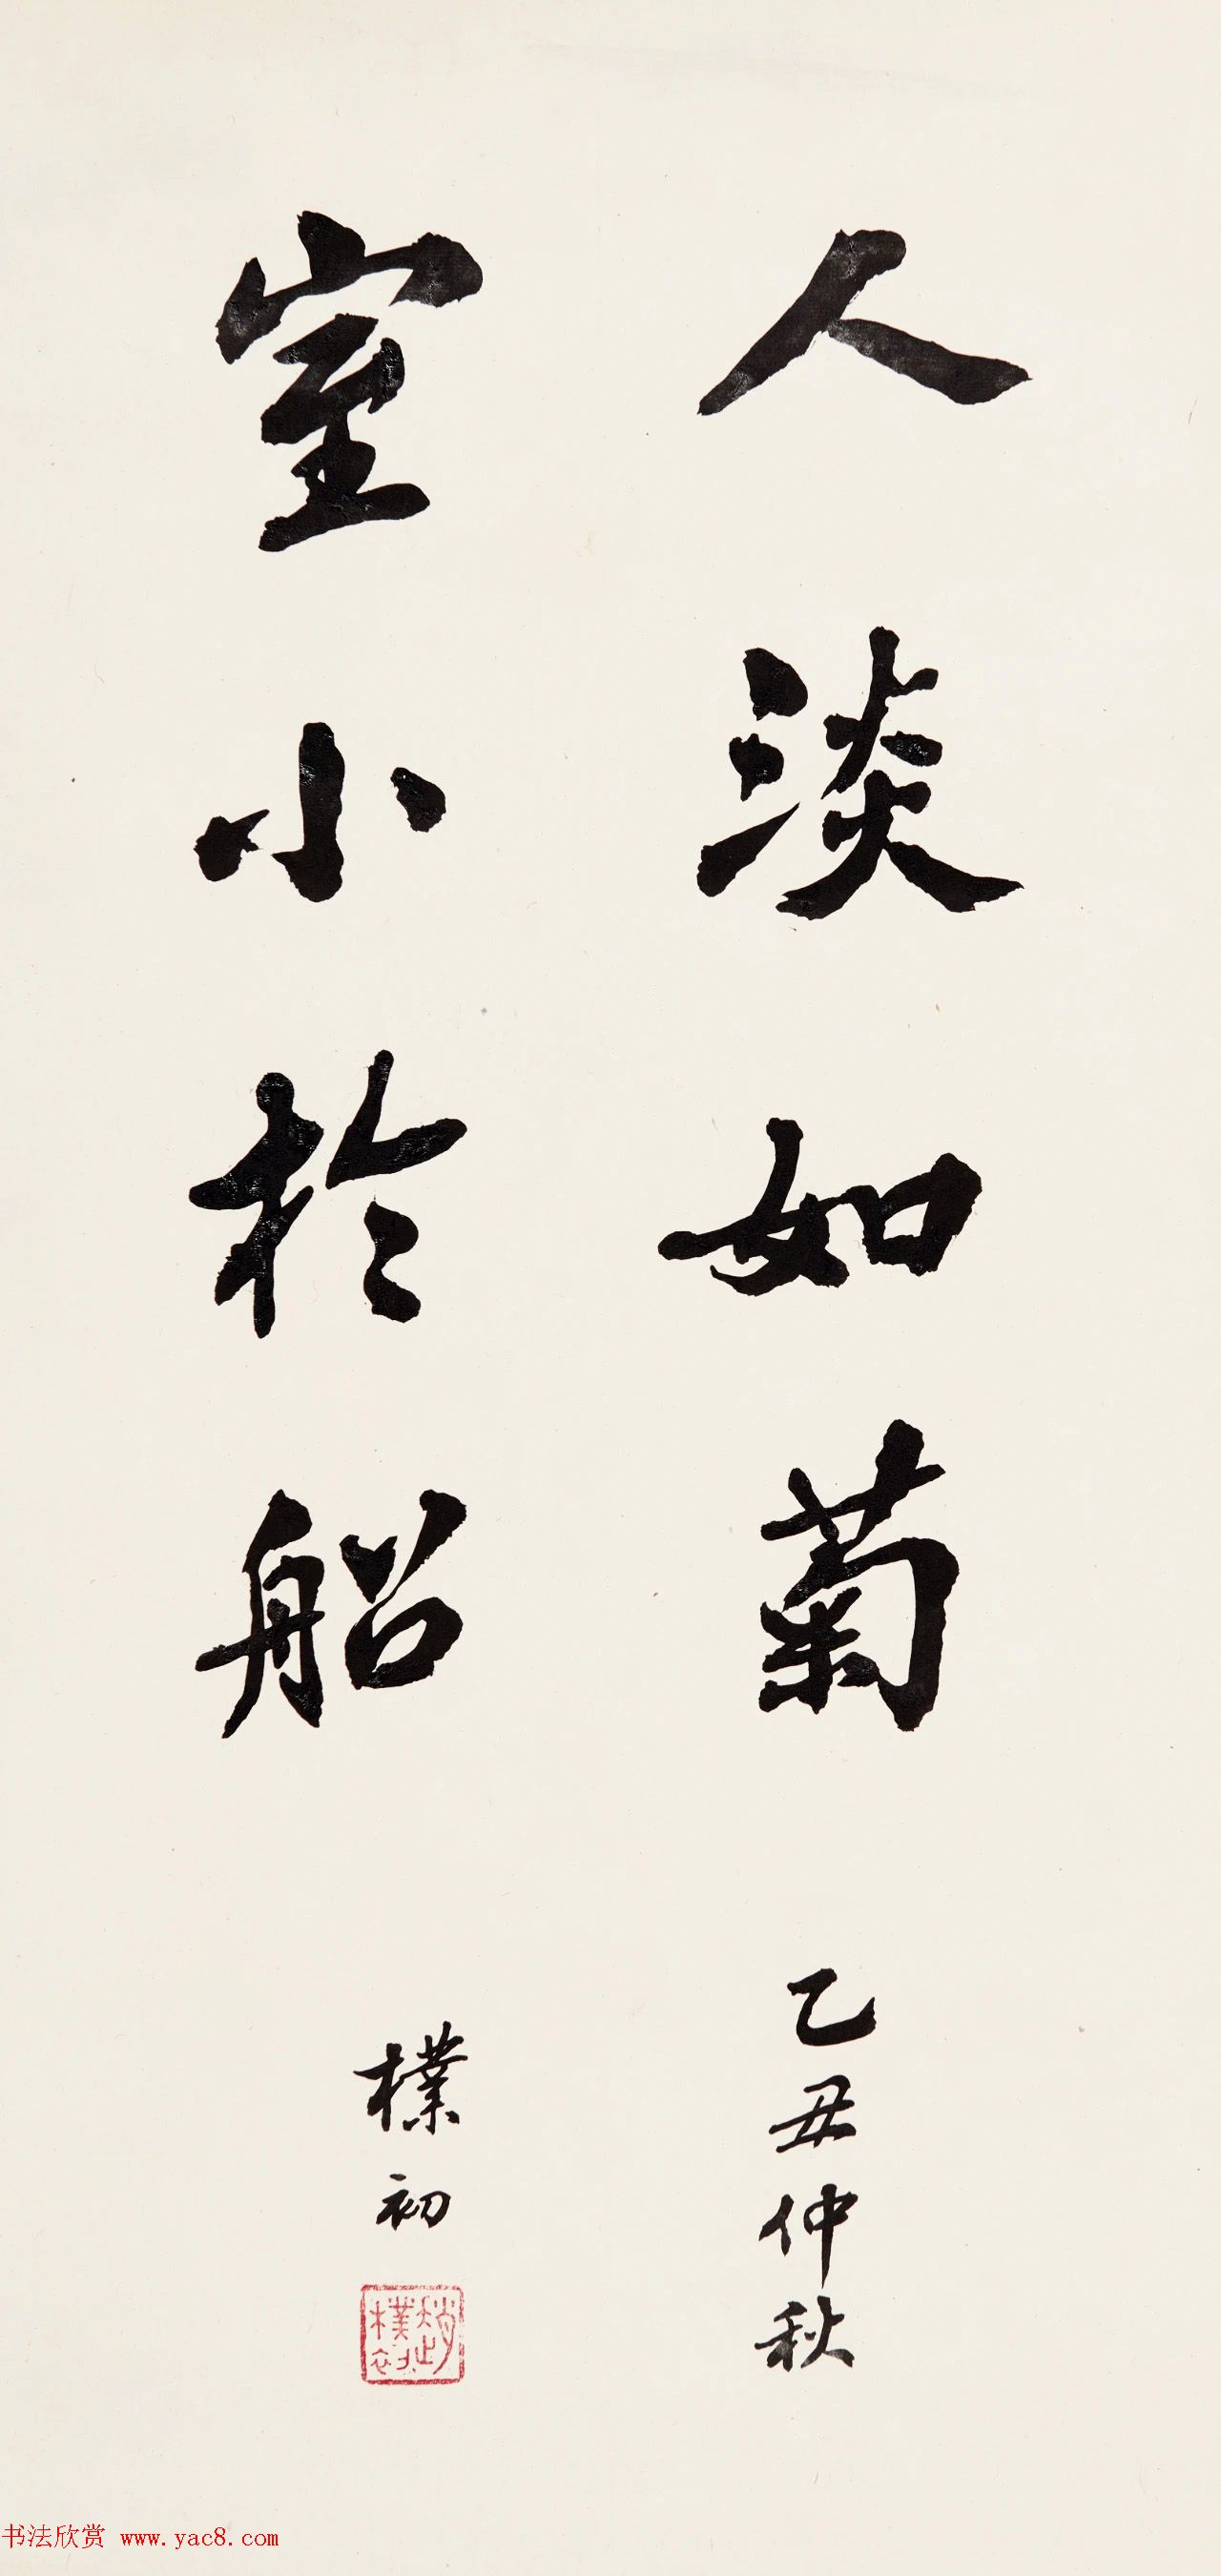 人淡如菊
乙丑仲秋
室小於船
樸初
趙樸初
书法欣赏 www.yac8.com